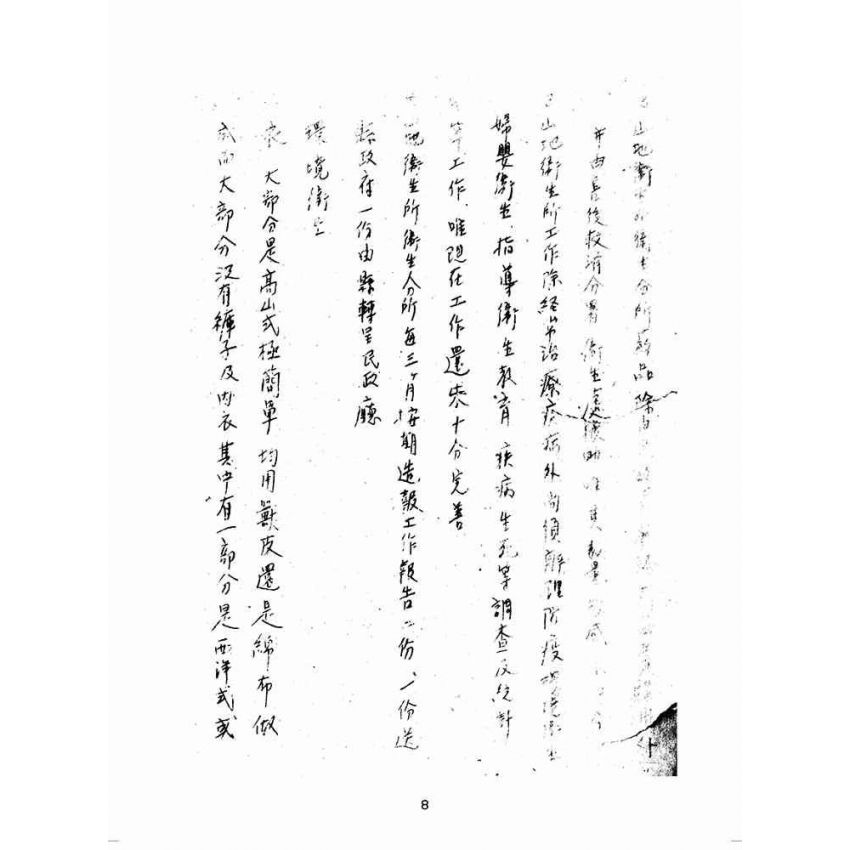 山地衛生所衛生分所藥品除
并由善後救濟分署 衛生 援助唯其數量 感
山地衛生所工作除経常治療疹病外尚須辦理防疫環境衛生
婦嬰衛生、指導衛生教育 疾病生死等調查及統計
等工作、唯現在工作還未十分完善
衛生所衛生分所每三ヶ月按期造報工作報告二份、一份送
縣政府一份由縣轉呈民政廳
環境衛生
衣 大部分是高山式極簡單 均用獸皮還是綿布做
成而大部分沒有褲子及內衣 其中有一部分是西洋式或
8